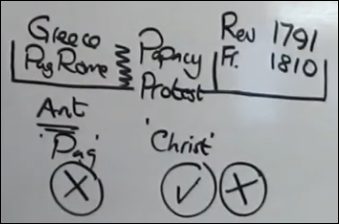 Greeco
Pag Rome
Papacy
Protest
Rev 1791
Fr. 1810
Ant
'Pag'
'Christ'